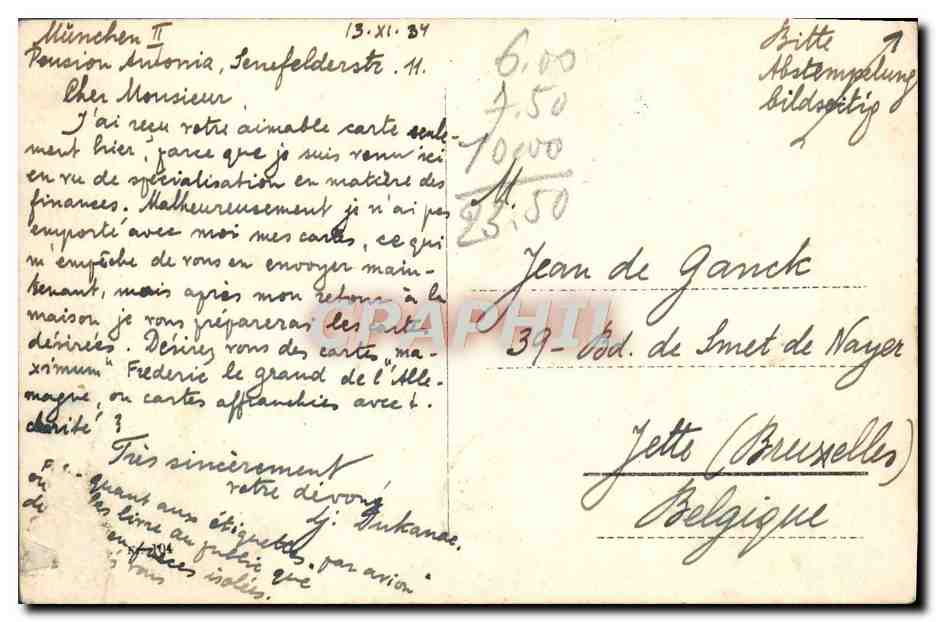 München II 13.XI.34
Pension Antonia, Senefelderstr. 11.
Cher Monsieur,
J'ai reçu votre aimable carte seule-
ment hier, parce que je suis venu ici
en vu de spécialisation en matière des
finances. Malheureusement je n'ai pas
emporté avec moi mes cartes, ce qui
m'empêche de vous en envoyer main-
tenant, mais après mon retour à la
maison je vous préparerai les carte
désirées. Désirez vous des cartes „ma-
ximum" Frederic le grand de l'Alle-
magne, ou cartes affranchies avec t.
charité ?
Très sincèrement
votre dévoué
Dukanac.
P.S.- quant aux étiquettes „par avion"
on les livre au public que
de en pièces isolées.
vous
Bitte
Abstempelung
bildseitig
6.00
7.50
10.00
23.50
M.
Jean de Ganck
39 - Bd. de Smet de Nayer
Jette (Bruxelles)
Belgique
CPAPHIL